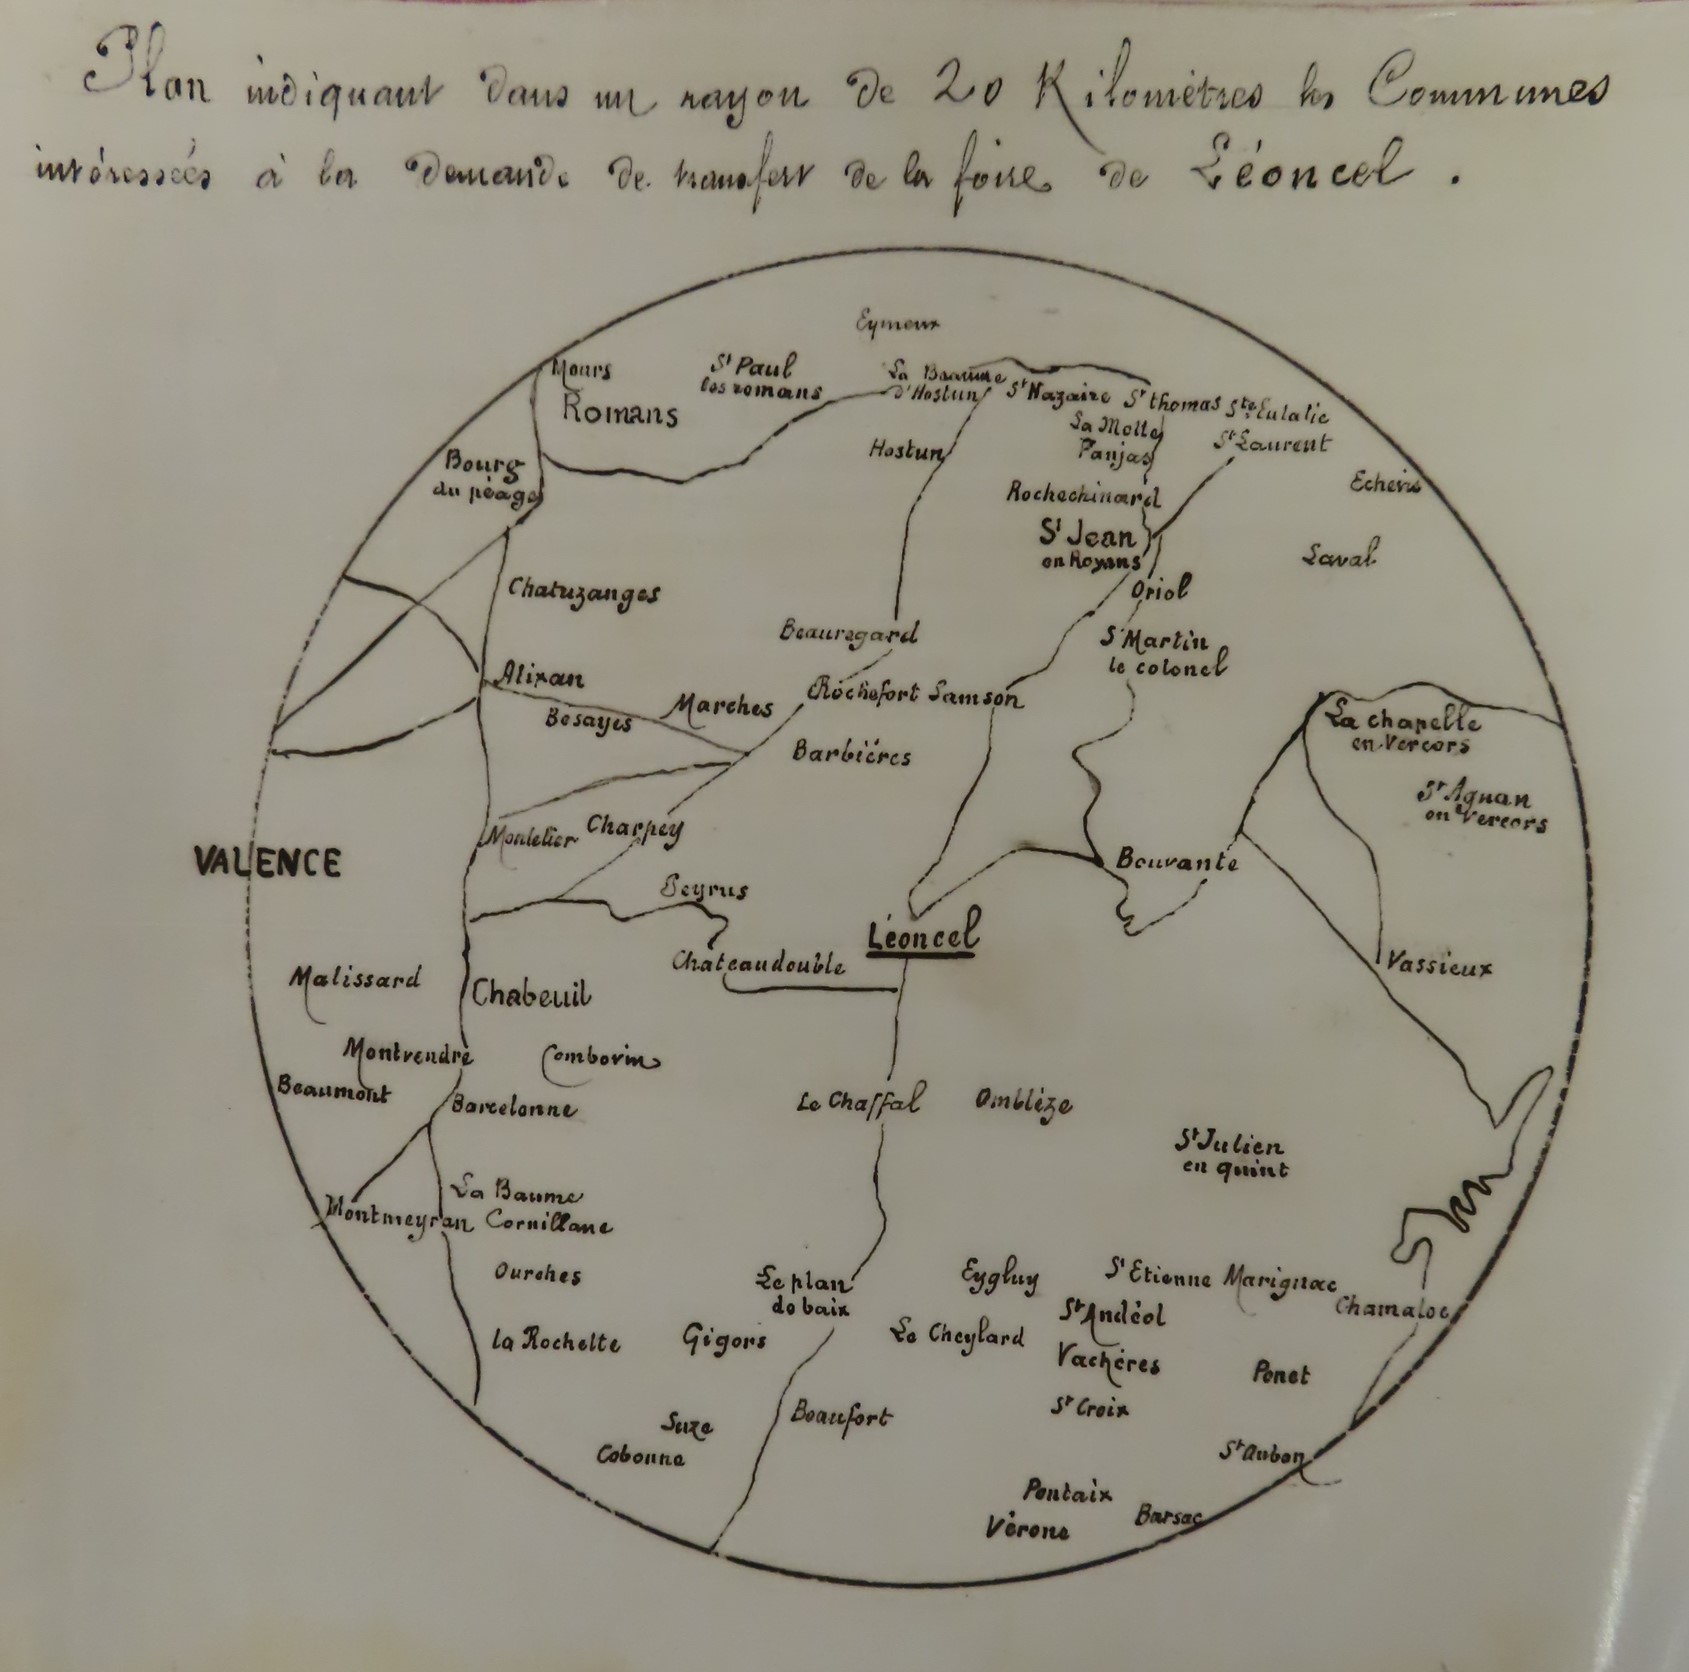 Plan indiquant dans un rayon de 20 Kilomètres les Communes
intéressées à la demande de transfert de la foire de Léoncel.
Eymeux
Mours
St Paul
les romans
La Beaume
d'Hostun
St Nazaire
St thomas
Ste Eulalie
Romans
La Motte
Fanjas
St Laurent
Hostun
Bourg
du péage
Rochechinard
Echevis
St Jean
en Royans
Laval
Chatuzanges
Oriol
Beauregard
St Martin
le colonel
Alixan
Rochefort Samson
Besayes
Marches
La chapelle
en Vercors
Barbières
St Agnan
en Vercors
Montelier
Charpey
VALENCE
Bouvante
Peyrus
Léoncel
Chateaudouble
Vassieux
Malissard
Chabeuil
Montvendre
Comborin
Beaumont
Barcelonne
Le Chaffal
Omblèze
St Julien
en quint
La Baume
Cornillane
Montmeyran
Ourches
Le plan
de baix
Eygluy
St Etienne
Marignac
Chamaloc
St Andéol
la Rochette
Gigors
Le Cheylard
Vachères
Ponet
St Croix
Beaufort
Suze
Cobonne
St Auban
Pontaix
Barsac
Vérone